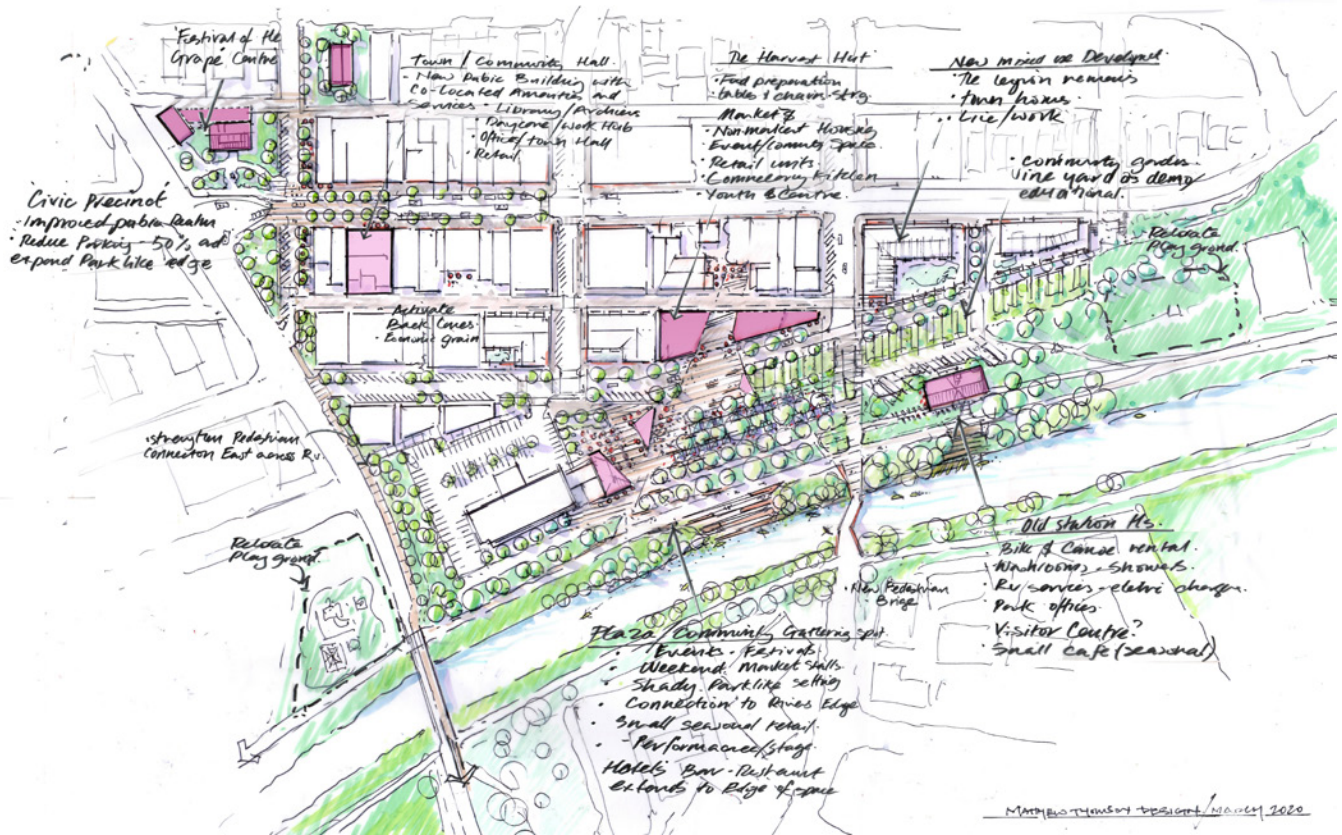 Festival of the
Grape Centre
Town / Community Hall.
• New Pubic Building with
Co-Located Amenities and
Services • Library/Archives
• Daycare/work Hub
• Office/Town Hall
• Retail
The Harvest Hut
• Food preparation
• tables & chairs strg.
Market &
• Non market Housing
• Event/Commty Space.
• Retail units.
• Commissary Kitchen
• Youth & Centre.
New mixed use Developmt.
• The legion remains
• town homes.
• Live/work
• community garden.
vine yard as demo
educational.
Relocate
Play ground.
Civic Precinct
• Improved public Realm
• Reduce Parking - 50% and
expand Park like edge
Activate
Back Lanes
• Economic grain
• strengthen Pedestrian
Connection East across Rv.
Relocate
Play ground.
• New Pedestrian
Brige
Old Station Hs.
• Bike & Canoe rental.
• Washrooms - Showers.
• Rv services - eletric charger.
• Park offices.
• Visitor Centre?
• Small cafe (seasonal)
Plaza / Community Gathering spot.
• Events - Festivals
• Weekend Market Stalls.
• Shady Parklike setting
• Connection to Rivers Edge
• Small seasonal retail.
• Performance/stage.
Hotels Bar - Restaurant
extends to Edge of space
MATHEW THOMSON DESIGN / MARCH 2020